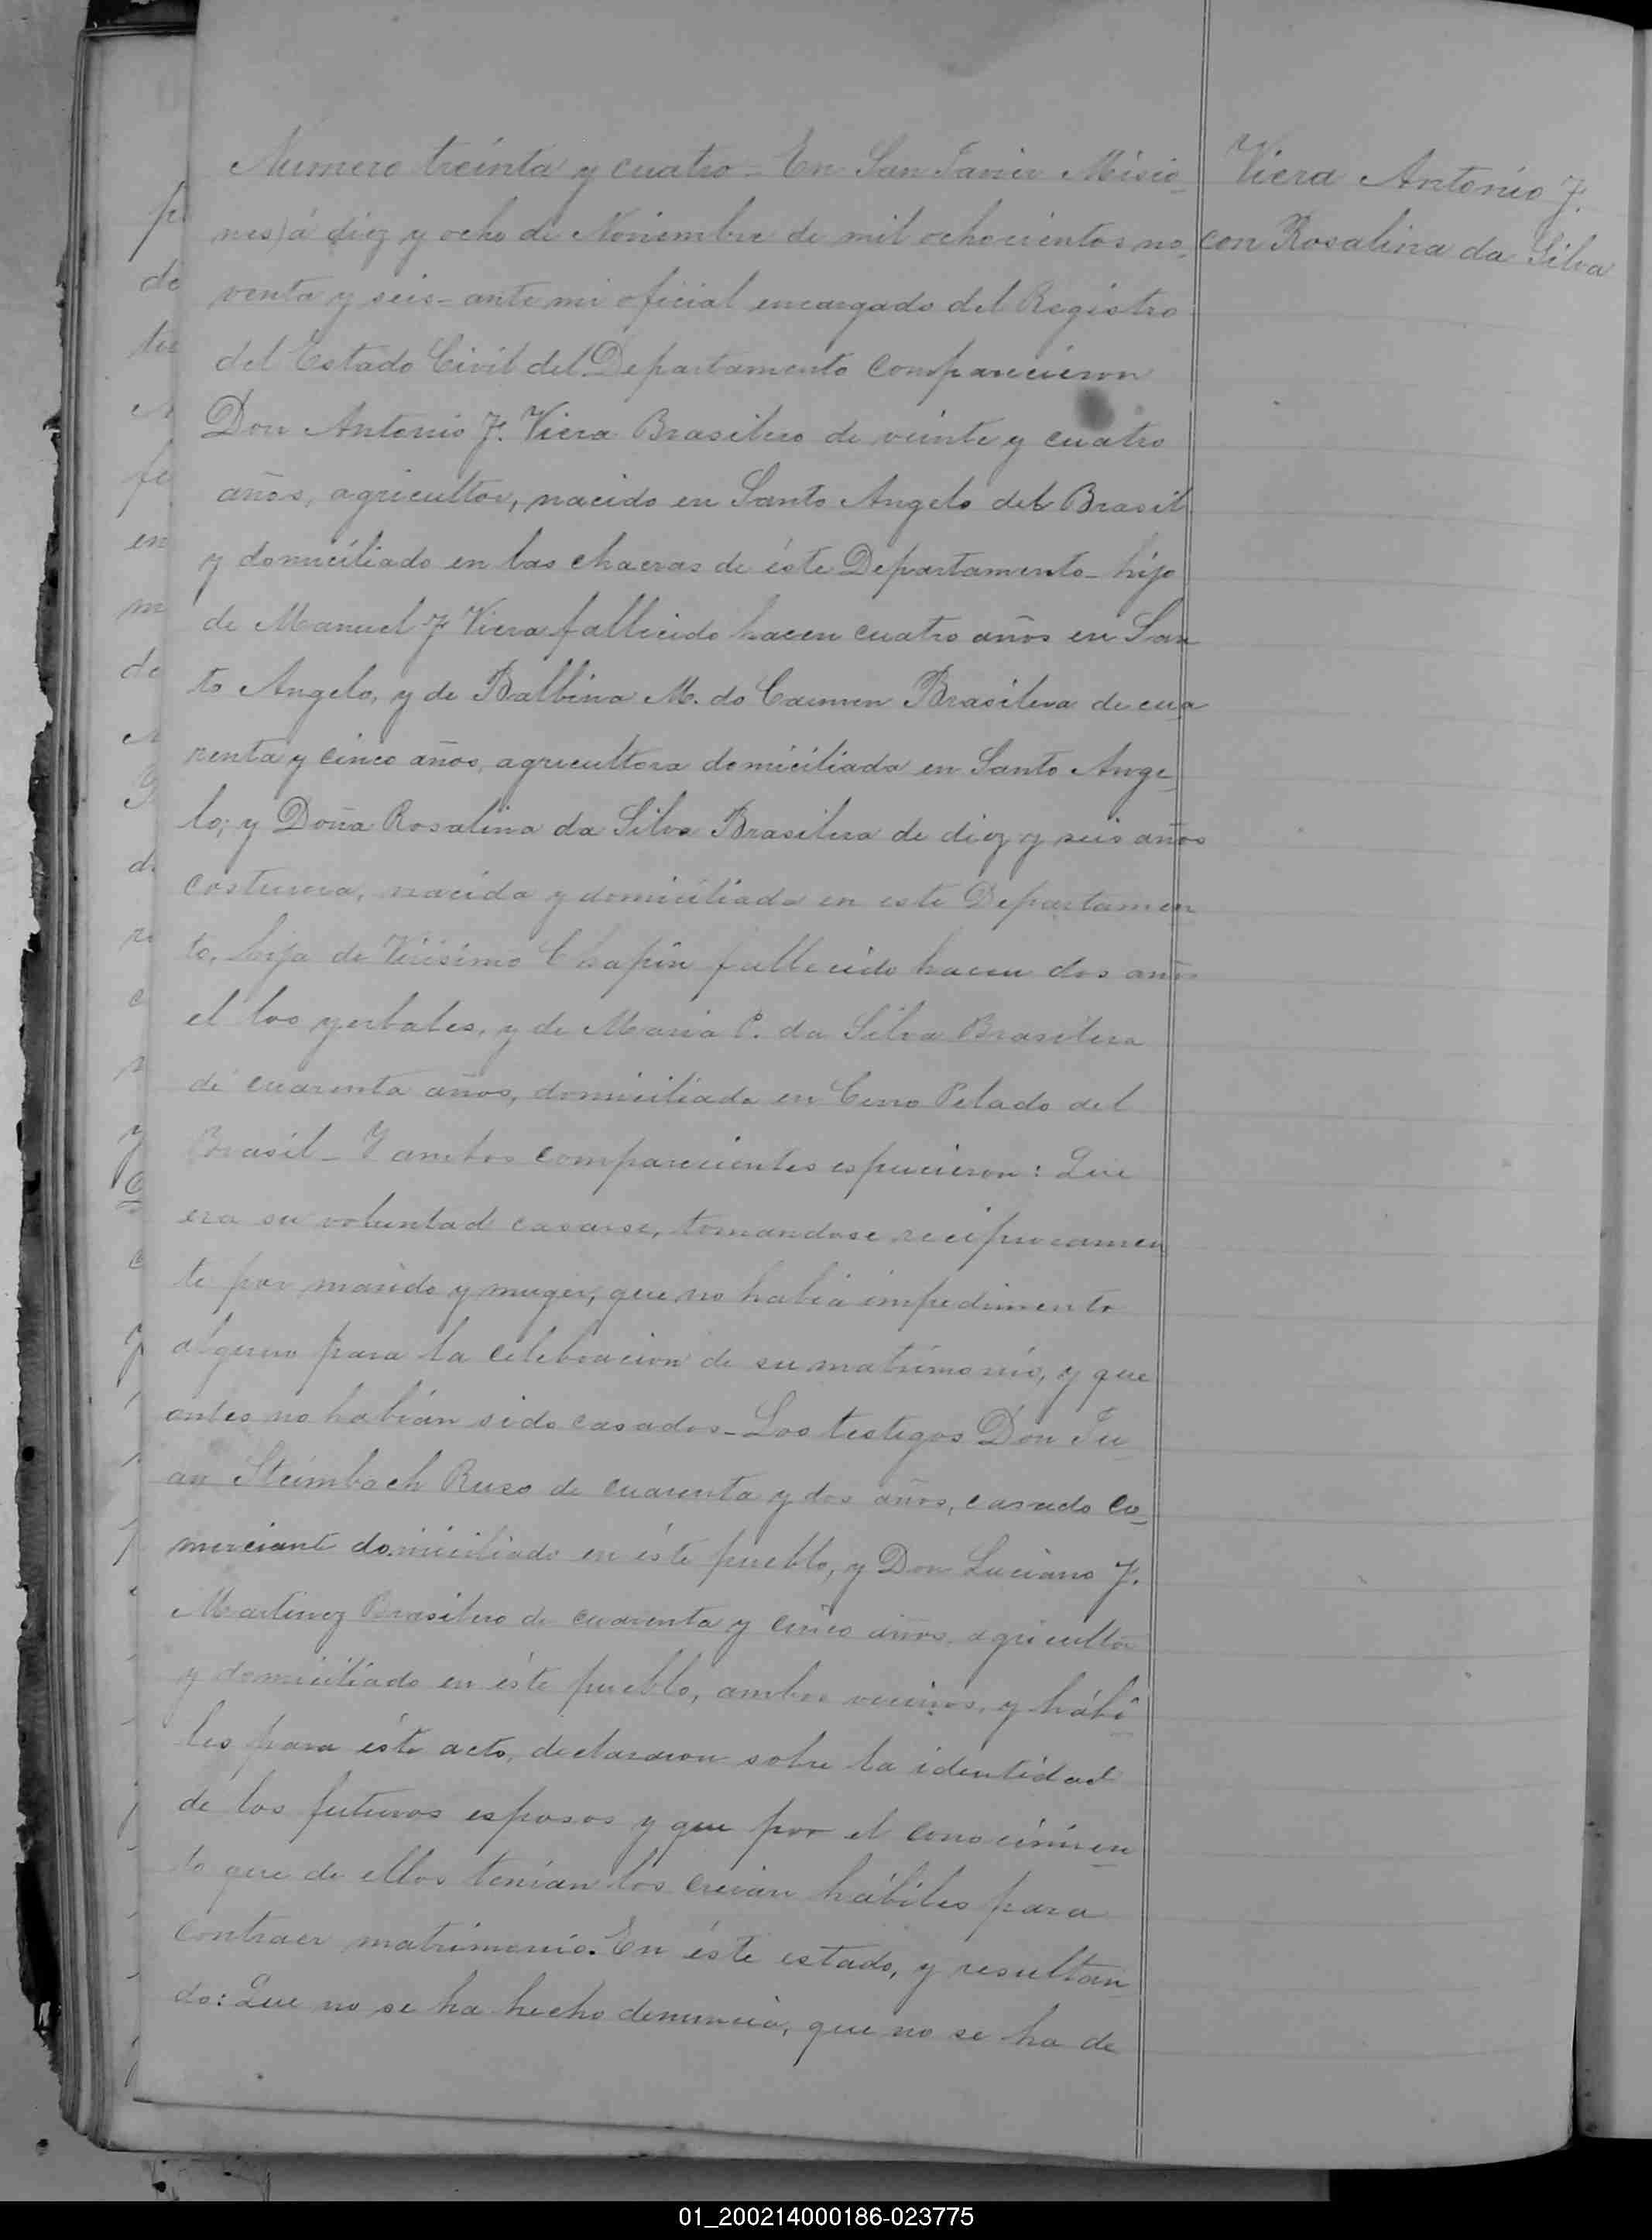 Numero treinta y cuatro = En San Javier Misio_
nes) á diez y ocho de Noviembre de mil ochocientos no_
venta y seis = ante mi oficial encargado del Registro
del Estado Civil del Departamento comparecieron
Don Antonio F. Viera Brasilero de veinte y cuatro
años, agricultor, nacido en Santo Angelo del Brasil
y domiciliado en las chacras de éste Departamento _ hijo
de Manuel F Viera fallecido hacen cuatro años en San
to Angelo, y de Balbina M. do Carmen Brasilera de cua
renta y cinco años, agricultora domiciliada en Santo Ange_
lo; y Doña Rosalina da Silva Brasilera de diez y seis años
costurera, nacida y domiciliada en este Departamen
to, hija de Virisimo Chapin fallecido hacen dos años
el los yerbales, y de Maria P. da Silva Brasilera
de cuarenta años, domiciliada en Cerro Pelado del
Brasil _ Y ambos comparecientes espucieron: Que
era su voluntad casarse, tomandose reciprocamen
te por marido y muger, que no habia impedimento
alguno para la celebracion de su matrimonio, y que
antes no habían sido casados _ Los testigos Don Ju_
an Steimbach Ruso de cuarenta y dos años, casado co_
merciante domiciliado en éste pueblo, y Don Luciano F.
Martinez Brasilero de cuarenta y cinco años, agricultor
y domiciliado en éste pueblo, ambos vecinos, y hábi_
les para éste acto, declararon sobre la identidad
de los futuros esposos y que por el conocimien
to que de ellos tenían los creian hábiles para
contraer matrimonio. En éste estado, y resultan
do: Que no se ha hecho denuncia, que no se ha de
Viera Antonio F.
con Rosalina da Silva
01_200214000186-023775